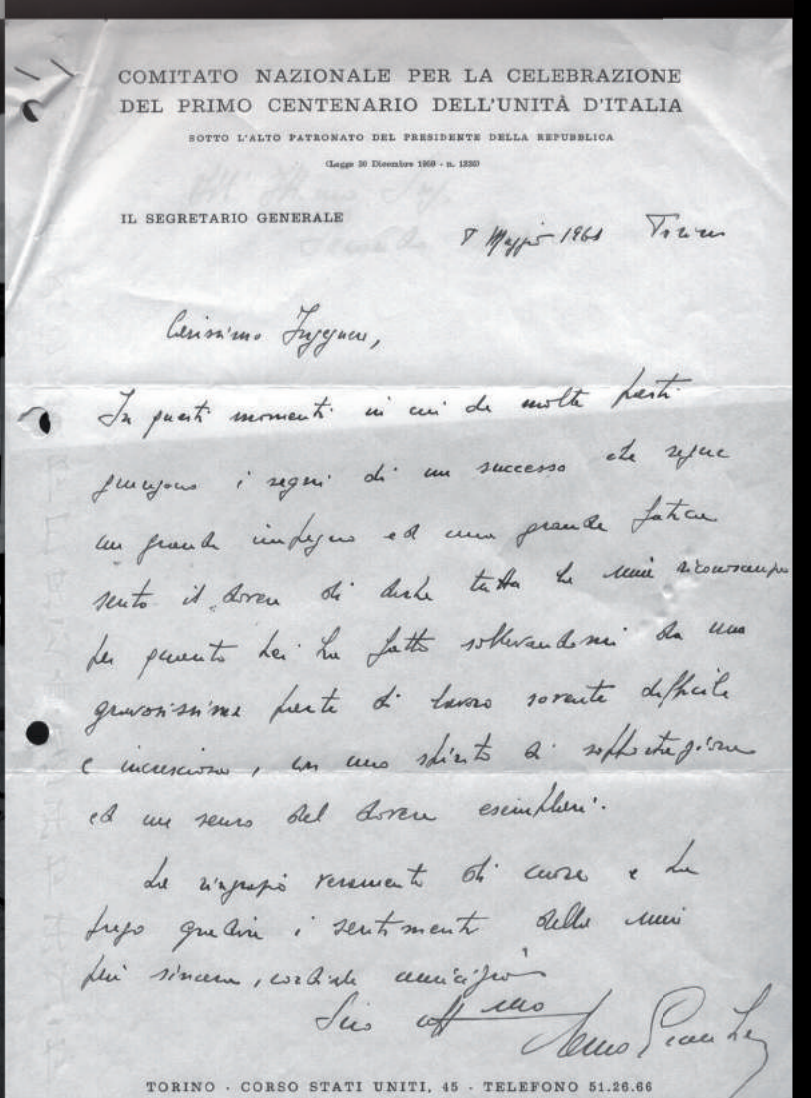 COMITATO NAZIONALE PER LA CELEBRAZIONE
DEL PRIMO CENTENARIO DELL'UNITÀ D'ITALIA
SOTTO L'ALTO PATRONATO DEL PRESIDENTE DELLA REPUBBLICA
IL SEGRETARIO GENERALE
Maggio 1961 Torino
Carissimo Ingegnere,
In questi momenti in cui da molte parti
giungono i segni di un successo che segue
un grande impegno ed una grande fatica
sento il dovere di dirLe tutta la mia riconoscenza
per quanto Lei ha fatto sollevandomi da una
gravosissima parte di lavoro sovente difficile
e increscioso, con uno spirito di sopportazione
ed un senso del dovere esemplari.
La ringrazio veramente di cuore e La
prego gradire i sentimenti della mia
più sincera, cordiale amicizia
Suo aff.mo
TORINO - CORSO STATI UNITI, 45 - TELEFONO 51.26.66